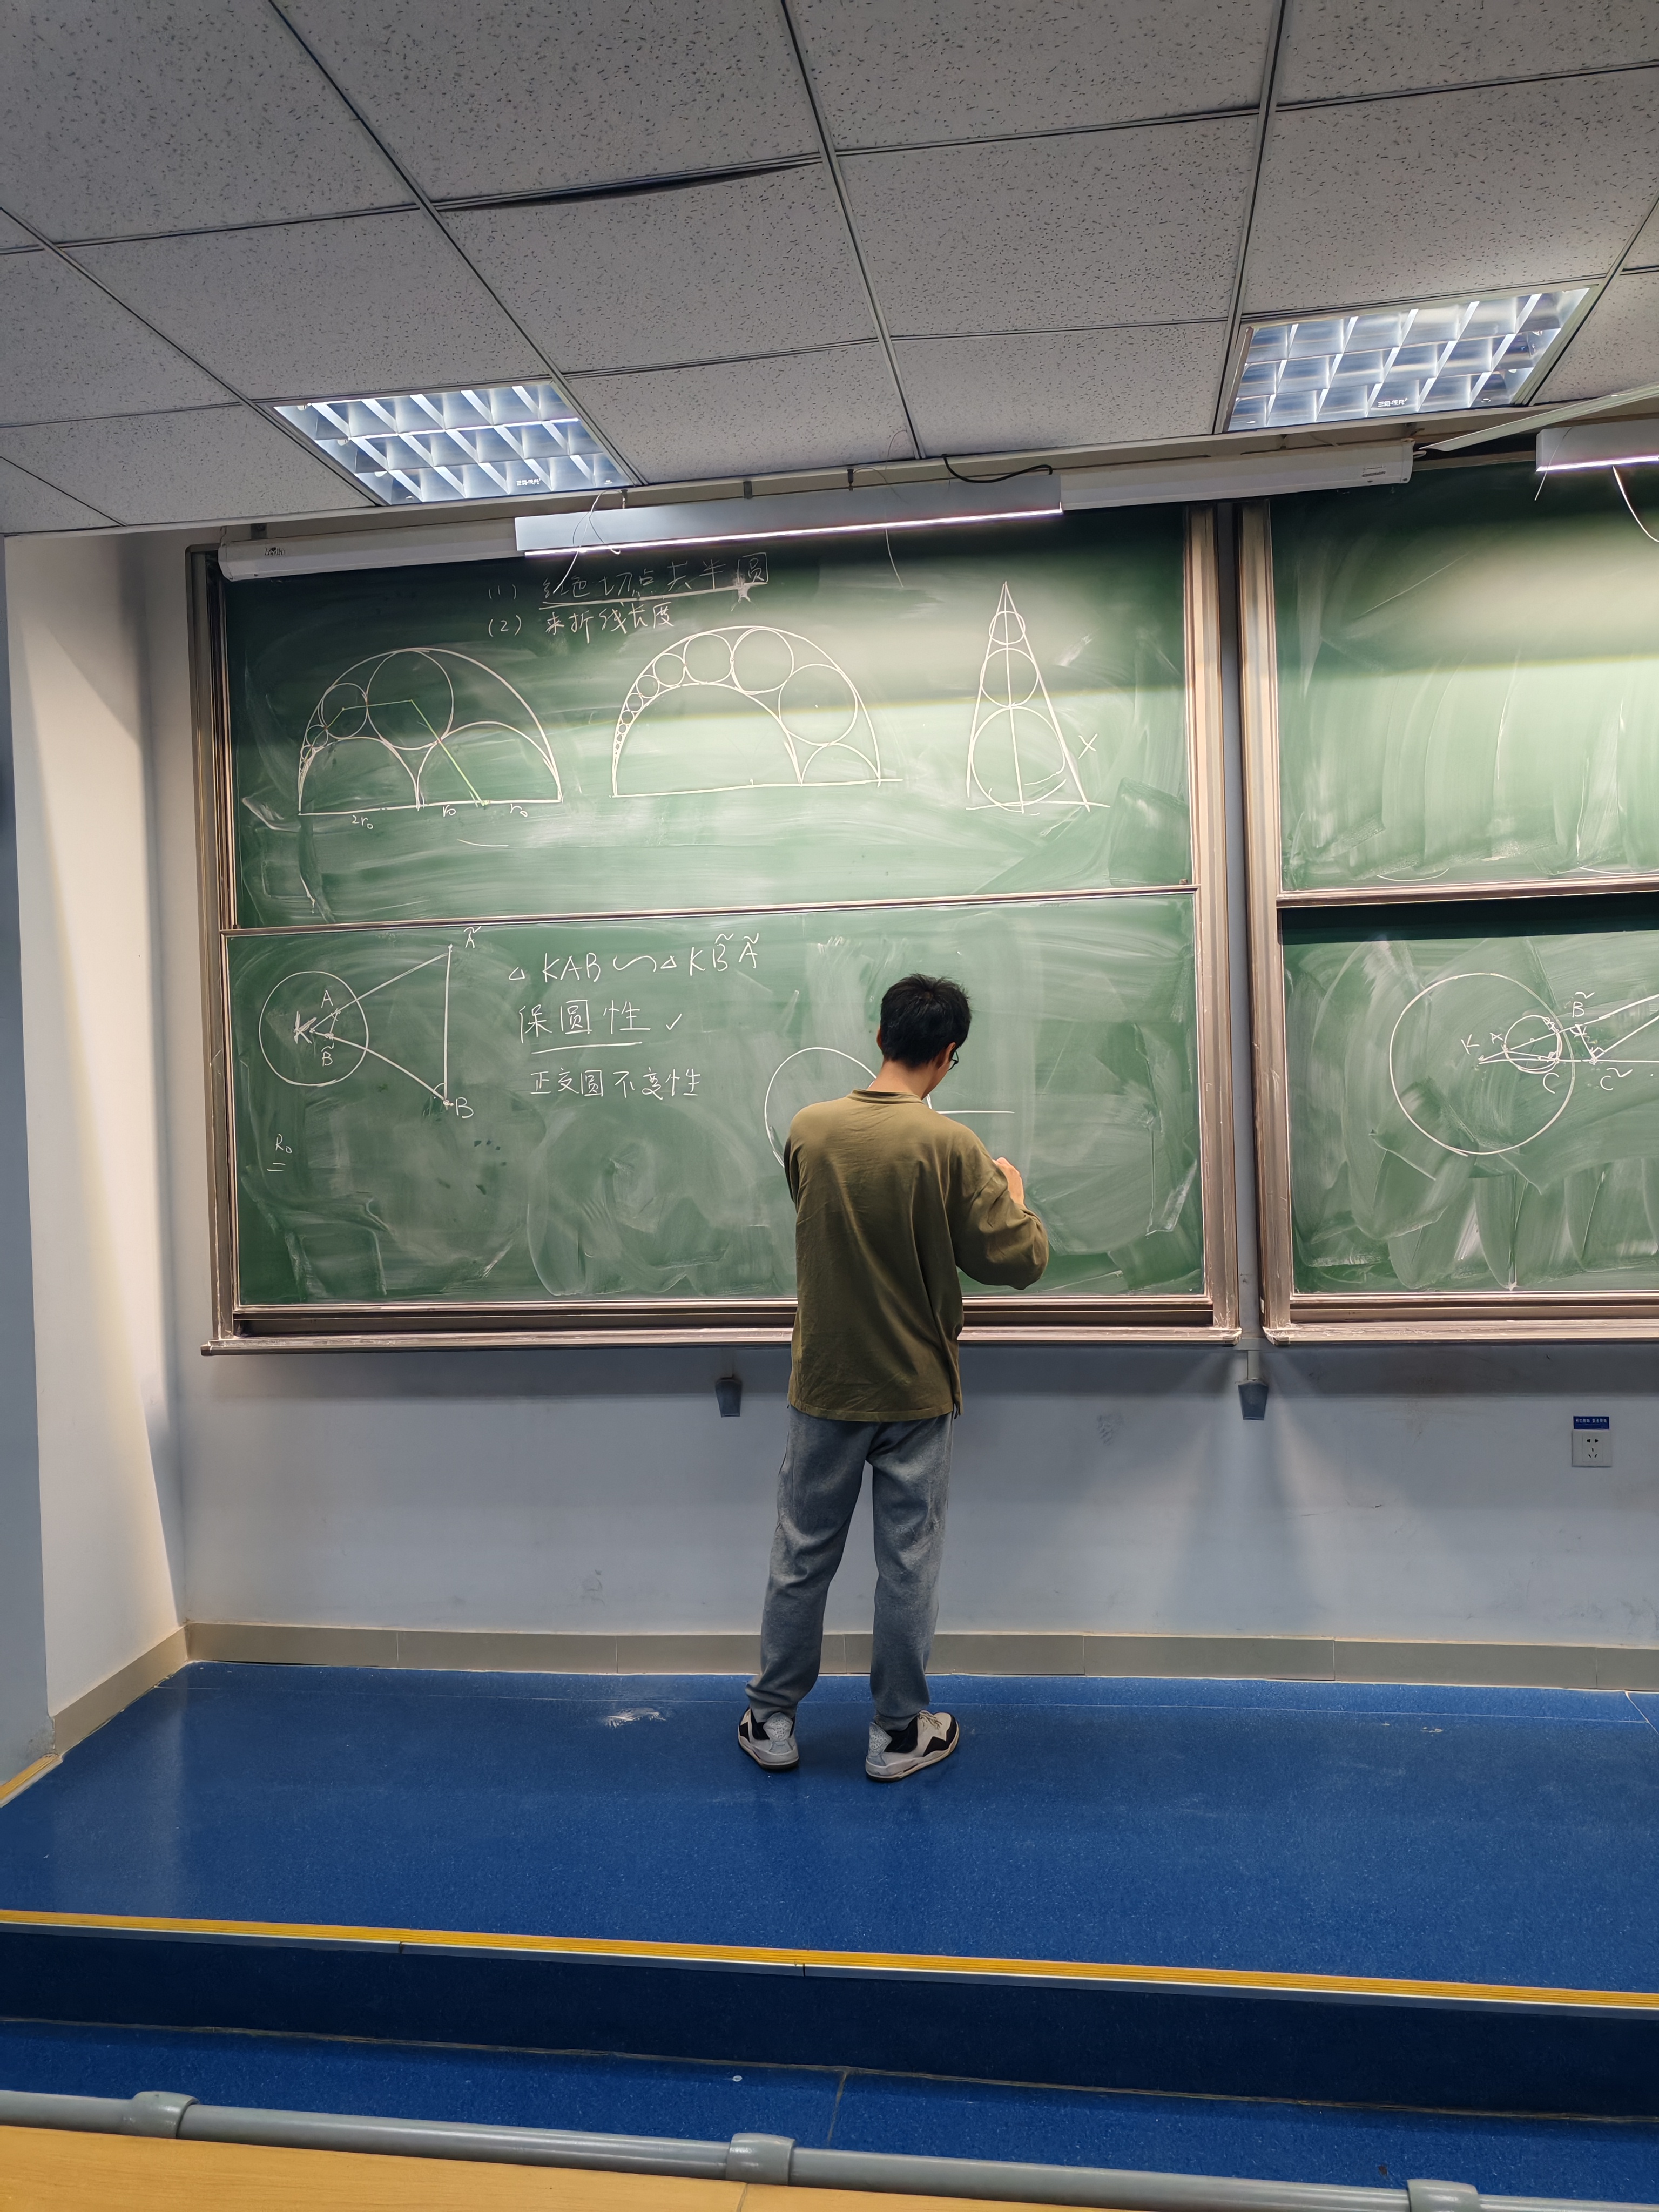 (1) 红色切点共半圆
(2) 来折线长度
2r₀ r₀ r₀
X
Ã
A
K
B̃
B
R₀
△KAB∽△KB̃Ã
保圆性 ✓
正交圆不变性
K A B̃
C C̃